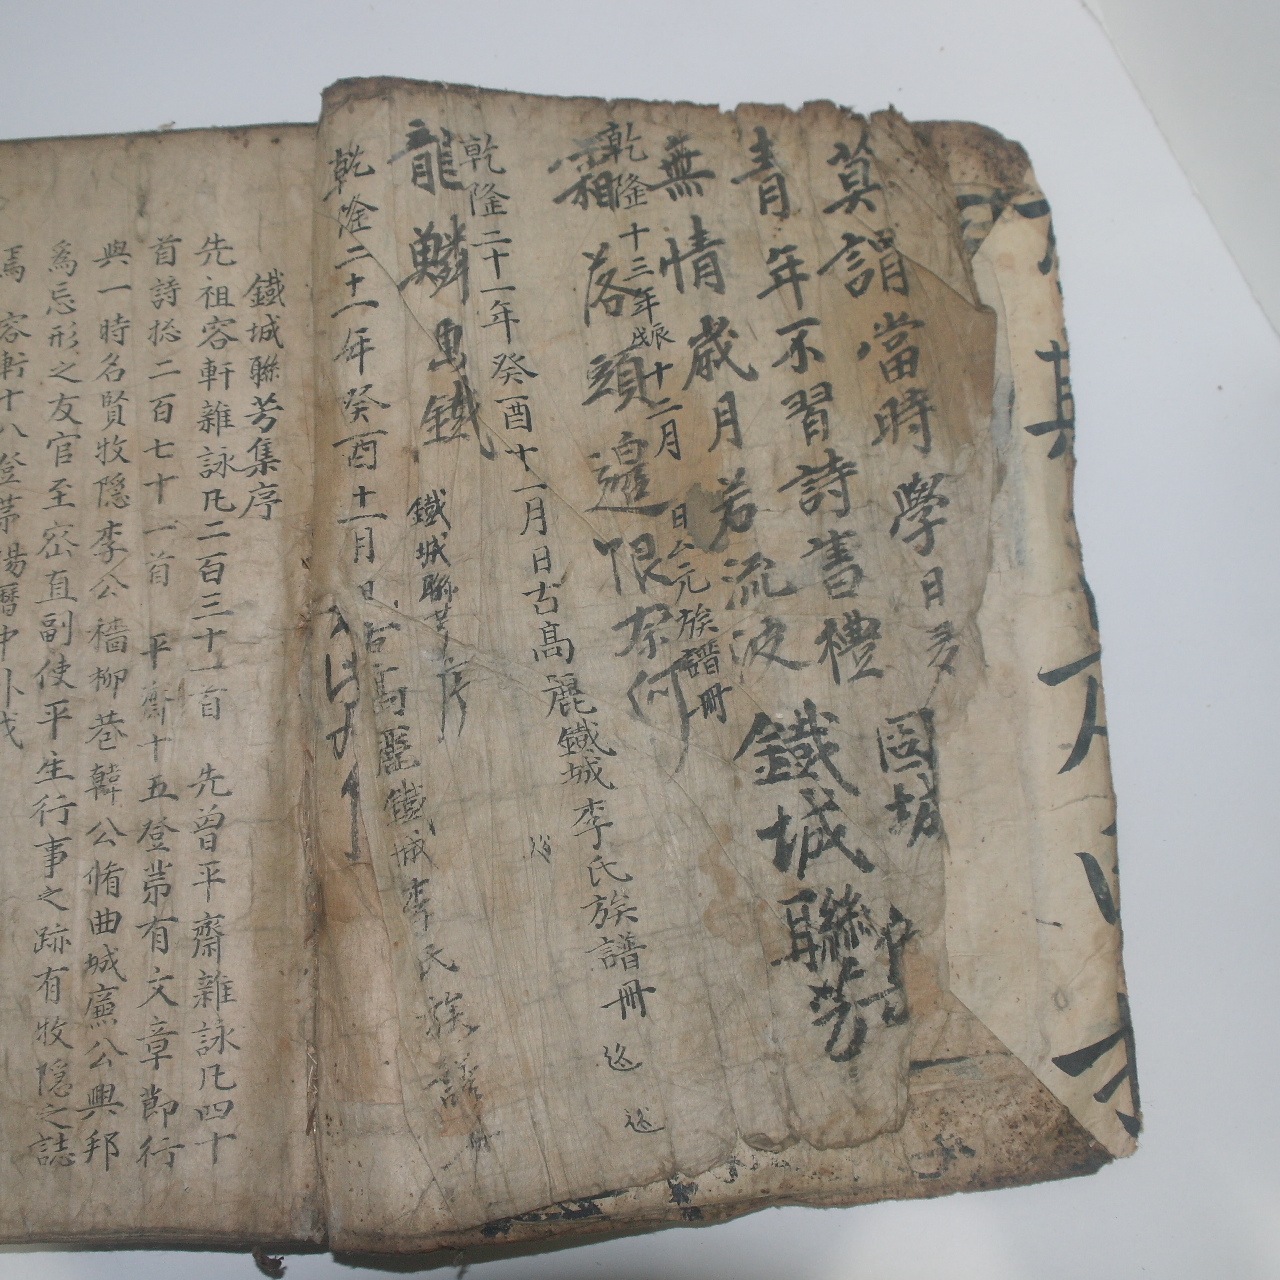 莫謂當時學日多
青年不習詩書禮
鐵城聯芳
無情歲月若流波
乾隆十三年戊辰十二月
元族譜冊
霜落頭邊恨奈何
乾隆二十一年癸酉十一月日古高麗鐵城李氏族譜冊
龍鱗
鐵
鐵城聯芳序
乾隆二十一年癸酉十一月日古高麗鐵城李氏族譜
鐵城聯芳集序
先祖容軒雜詠凡二百三十一首 先曾平齋雜詠凡四十
首詩捴二百七十一首 平齋十五登第有文章節行
與一時名賢牧隱李公穡柳巷韓公脩曲城廉公興邦
爲忘形之友官至密直副使平生行事之跡有牧隱之誌
焉 容軒十八登第揚歷中外